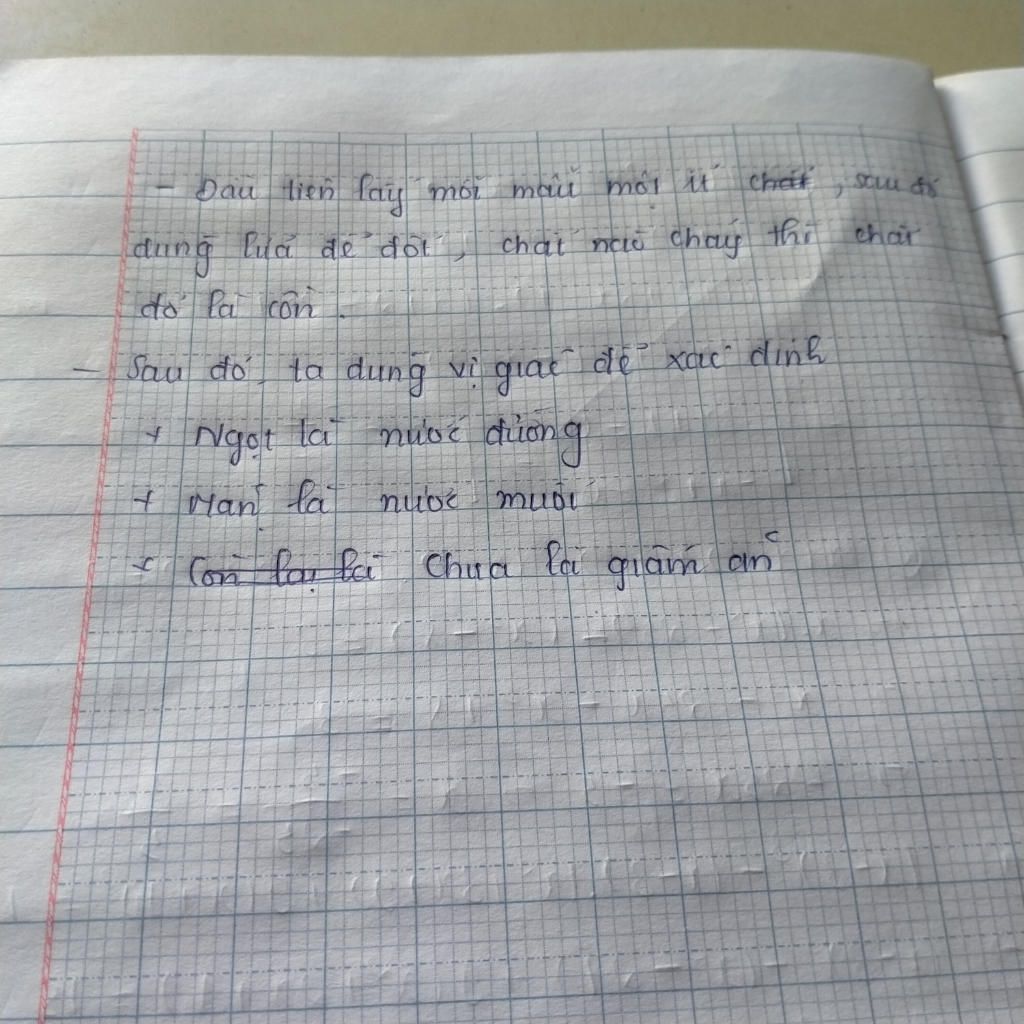 - Đầu tiên lấy mỗi mẫu một ít chất, sau đó
dùng lửa để đốt, chất nào cháy thì chất
đó là cồn.
- Sau đó, ta dùng vị giác để xác định
+ Ngọt là nước đường
+ Mặn là nước muối
+ Còn lại là Chua là giấm ăn